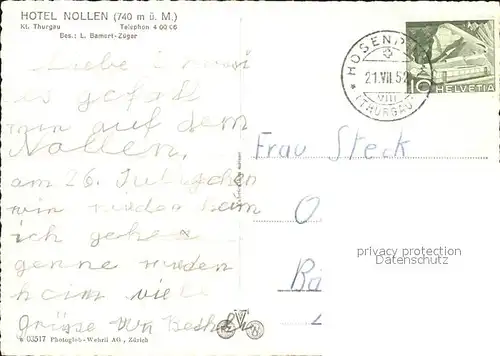 HOTEL NOLLEN (740 m ü. M.)
Kt. Thurgau Telephon 4 00 06
Bes.: L. Bamert-Züger
Liebe
es gefält
mir auf dem
Nollen.
am 26. Juli gehen
wir wieder heim
ich gehe
gerne wieder
heim viele
grüsse von
HOSEN
21.VII.52
VIII
(THURGAU)
10 HELVETIA
Frau Steck
O
Bä
privacy protection
Datenschutz
03517 Photoglob-Wehrli AG., Zürich